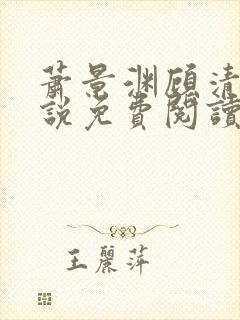 蕭景渊顾清
說免費閱讀
王麗萍